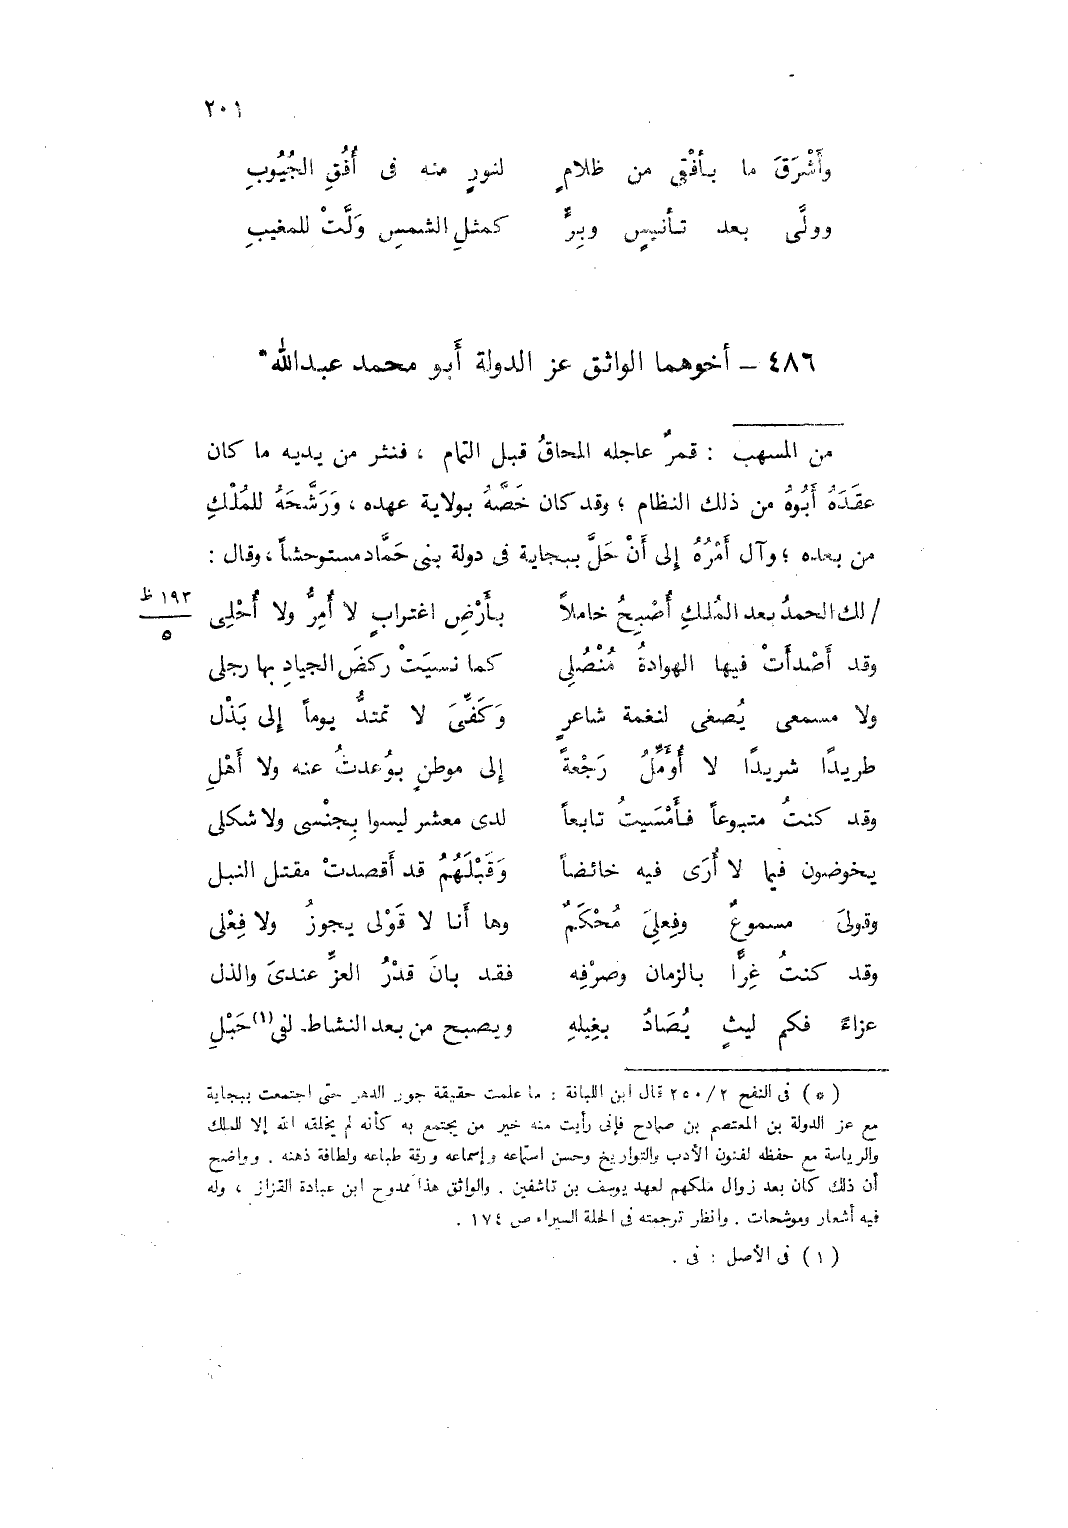 ٢٠١
وأَشْرَقَ ما بأفْقٍ من ظلامٍ لنورٍ منه فى أُفُقِ الجُيُوبِ
وولَّى بعد تأنيسٍ وبِرٍّ كمثلِ الشمسِ وَلَّتْ للمغيبِ
٤٨٦ – أخوهما الواثق عز الدولة أَبو محمد عبدالله*
من المسهب : قمرٌ عاجله المحاقُ قبل التمام ، فنثر من يديه ما كان
عقَدَهُ أَبُوهُ من ذلك النظام ؛ وقد كان خَصَّهُ بولاية عهده ، وَرَشَّحَهُ للمُلْكِ
من بعده ؛ وآل أَمْرُهُ إلى أَنْ حَلَّ ببجاية فى دولة بنى حَمَّاد مستوحشاً ، وقال :
/ لك الحمدُ بعد المُلكِ أُصْبِحُ خاملاً بأَرْضِ اغترابٍ لا أُمِرُّ ولا أُحْلِى
١٩٣ ظ
٥
وقد أَصْدأَتْ فيها الهوادةُ مُنْصُلِى كما نسيَتْ ركضَ الجيادِ بها رجلى
ولا مسمعى يُصغى لنغمة شاعرٍ وَكَفِّىَ لا تمتدُّ يوماً إلى بَذْل
طريدًا شريدًا لا أُوَمِّلُ رَجْعةً إلى موطنٍ بوُعدتُ عنه ولا أَهْلِ
وقد كنتُ متبوعاً فأَمْسَيتُ تابعاً لدى معشر ليسوا بِجنْسى ولا شكلى
يخوضون فيما لا أُرَى فيه خائضاً وَقَبْلَهُمُ قد أَقصدتْ مقتل النبل
وقولىَ مسموعٌ وفِعلىَ مُحْكَمٌ وها أَنا لا قَوْلى يجوزُ ولا فِعْلى
وقد كنتُ غِرًّا بالزمان وصرْفِه فقد بانَ قدْرُ العزِّ عندىَ والذل
عزاءً فكم ليثٍ يُصَادُ بغِيلهِ ويصبح من بعد النشاط لفى(١) حَبْلِ
(*) فى النفح ٢/ ٢٥٠ قال ابن اللبانة : ما علمت حقيقة جور الدهر حتى اجتمعت ببجاية
مع عز الدولة بن المعتصم بن صمادح فإنى رأيت منه خير من يجتمع به كأنه لم يخلقه الله إلا للملك
والرياسة مع حفظه لفنون الأدب والتواريخ وحسن استماعه وإسماعه ورقة طباعه ولطافة ذهنه . وواضح
أن ذلك كان بعد زوال ملكهم لعهد يوسف بن تاشفين . والواثق هذا ممدوح ابن عبادة القزاز ، وله
فيه أشعار وموشحات . وانظر ترجمته فى الحلة السيراء ص ١٧٤ .
(١) فى الأصل : فى .